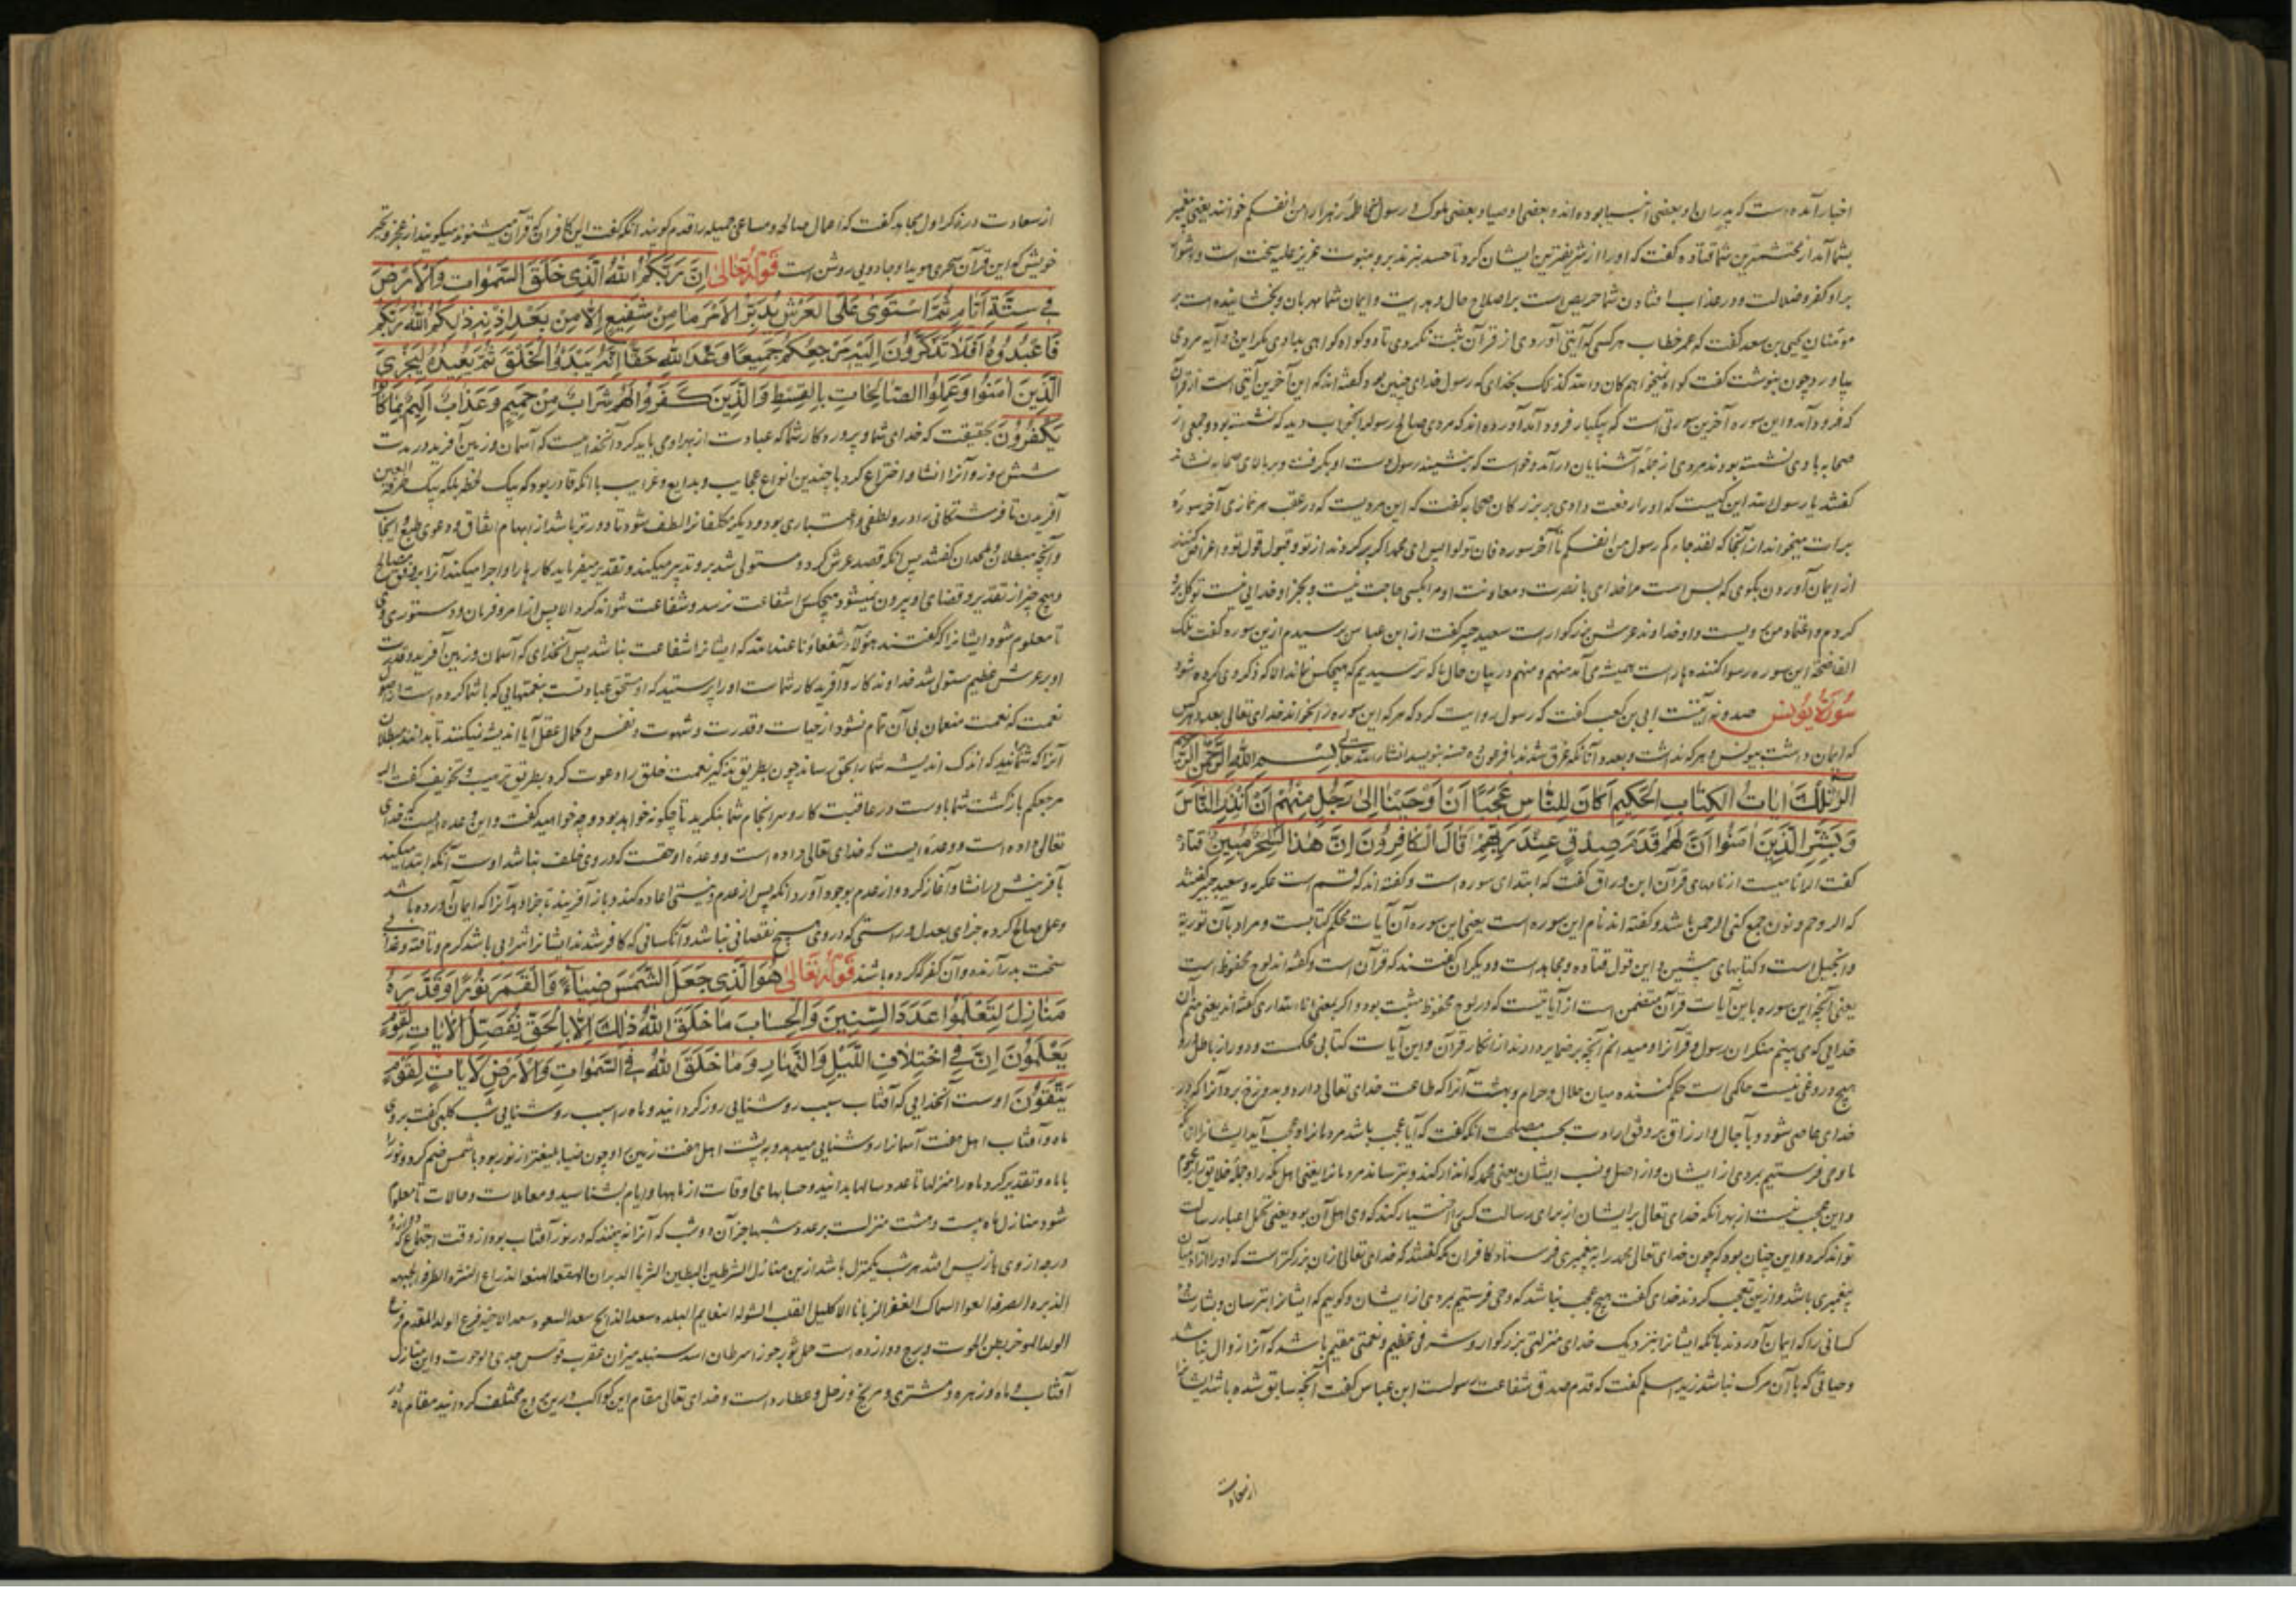 اخبار آمده است که پدران او بعضی انبیا بوده اند و بعضی اوصیا و بعضی ملوک و رسول من انفسکم خوانند یعنی پیغمبر
بشما آمد از محتشمترین شما قتاده گفت که او را از شریفترین ایشان کرد تا حسد نبرند بر و بنبوت عزیز علیه سخت است و دشوار
براو کفر و ضلالت و در عذاب افتادن شما حریص است بر اصلاح حال و بر ایمان شما مهربان و بخشاینده است بر
مؤمنان یحیی بن سعد گفت که عمر خطاب هر کسی که آیتی آوردی از قرآن ثبت نکردی تا دو گواه گواهی بدادی بر این دو آیه مردی
بیاورد چون بنوشت گفت گواه نمیخواهم کان والله کذلک بخدای که رسول خدای چنین بود و گفته اند که این آخرین آیتی است از قرآن
که فرود آمد و این سوره آخرین سورتی است که بیکبار فرود آمد آورده اند که مردی صالح رسول را بخواب دید که نشسته بود و جمعی از
صحابه با وی نشسته بودند مردی از جمله آشنایان درآمد و خواست که بنشیند رسول دست او بگرفت و بر بالای صحابه بنشاند
گفتند یا رسول الله این کیست که او را رفعت دادی بر بزرگان صحابه گفت که این مردیست که در عقب هر نمازی آخر سوره
برات میخواند از آنجا که لقد جاءکم رسول من انفسکم تا آخر سوره فان تولوا پس ای محمد اگر برگردند از تو و قبول قول تو و اعراض کنند
از ایمان آوردن بگوی که بس است مرا خدای با نصرت و معاونت او مرا بکسی حاجت نیست و بجز او خدایی نیست توکل برو
کردم و اعتماد من برویست و او خداوند عرش بزرگوار است سعید جبیر گفت از ابن عباس پرسیدم از این سوره گفت تلک
الفاضحة این سوره رسوا کننده است همیشه می آمد منهم و منهم در بیان حال ما که ترسیدیم که هیچکس نماند الا که ذکر وی کرده شود
سورة یونس صد و نه آیتست ابی بن کعب گفت که رسول روایت کرد که هر که این سوره را بخواند خدای تعالی بعدد هر کس
که ایمان داشت بیونس و هر که نداشت و بعدد آنانکه غرق شدند با فرعون ده حسنه بنویسد انشاء الله تعالی بسم الله الرحمن الرحیم
الر تلک ایات الکتاب الحکیم اکان للناس عجبا ان اوحینا الی رجل منهم ان انذر الناس
وبشر الذین امنوا ان لهم قدم صدق عند ربهم قال الکافرون ان هذا لسحر مبین قتاده
گفت الر نامیست از نامهای قرآن ابن وراق گفت که ابتدای سوره است و گفته اند که قسم است عکرمه و سعید جبیر گفتند
که الر و حم و نون جمع کنی الرحمن باشد و گفته اند نام این سوره است یعنی این سوره آن آیات محکم کتابست و مراد بآن توریة
و انجیل است و کتابهای پیشین و این قول قتاده و مجاهد است و دیگران گفتند که قرآن است و گفته اند لوح محفوظ است
یعنی آنچه این سوره باین آیات قرآن متضمن است از آیاتیست که در لوح محفوظ مثبت بود و الر بمعنی انا الله اری گفته اند یعنی منم آن
خدایی که می بینم منکران رسول و قرآنرا و میدانم آنچه بر ضمایر دارند از انکار قرآن و این آیات کتابی محکمست و دور از باطل و در
هیچ دروغی نیست حاکمی است حکم کننده میان حلال و حرام و بهشت آنرا که طاعت خدای تعالی دارد و بدوزخ برد آنرا که در
خدای عاصی شود و بآجال و ارزاق بر وفق ارادت بحسب مصلحت آنگه گفت که آیا عجب باشد مردمانرا و عجب آید ایشانرا آنکه
ما وحی فرستیم بمردی از ایشان و از اصل و نسب ایشان یعنی محمد که انذار کند و بترساند مردمانرا یعنی اهل مکه را و جمله خلایق را بر عموم
و این عجب نیست از بهر آنکه خدای تعالی بر ایشان از برای رسالت کسی را اختیار کند که وی اهل آن بود یعنی تحمل اعباء رسالت
تواند کرد و این چنان بود که چون خدای تعالی محمد را به پیغمبری فرستاد کافران مکه گفتند که خدای تعالی از آن بزرگتر است که او را از آدمیان
پیغمبری باشد و از این تعجب کردند خدای گفت هیچ عجب نباشد که وحی فرستیم بمردی از ایشان و گوییم که ایشانرا بترسان و بشارت ده
کسانی را که ایمان آوردند بآنکه ایشانرا بنزدیک خدای منزلتی بزرگوار و شرفی عظیم و نعمتی مقیم باشد که آنرا زوال نباشد
و حیاتی که با آن مرگ نباشد زید اسلم گفت که قدم صدق شفاعت رسولست ابن عباس گفت آنچه سابق شده باشد ایشانرا
از سعادت
از سعادت در ذکر اول مجاهد گفت که اعمال صالح و مساعی جمیله را قدم گویند آنگه گفت این کافران که قرآن میشنوند میگویند از عجز و تحیر
خویش که این قرآن سحری هویدا و جادویی روشن است قوله تعالی ان ربکم الله الذی خلق السموات والارض
فی ستة ایام ثم استوی علی العرش یدبر الامر ما من شفیع الا من بعد اذنه ذلکم الله ربکم
فاعبدوه افلا تذکرون الیه مرجعکم جمیعا وعد الله حقا انه یبدؤا الخلق ثم یعیده لیجزی
الذین امنوا وعملوا الصالحات بالقسط والذین کفروا لهم شراب من حمیم وعذاب الیم بما کانوا
یکفرون بحقیقت که خدای شما و پروردگار شما که عبادت از بهر وی باید کرد آنخداییست که آسمان و زمین آفرید در مدت
شش روز و آنرا انشا و اختراع کرد با چندین انواع عجایب و بدایع و غرایب با آنکه قادر بود که بیک لحظه بلکه بیک طرفة العین
آفریدن تا فرشتگانی را در و لطفی و اعتباری بود و دیگر مکلفانرا لطف شود تا دورتر باشد از ابهام اتفاق و دعوی طبع و ایجاب
و آنچه مبطلان و ملحدان گفتند پس آنگه قصد عرش کرد و مستولی شد بر و تدبیر میکند و تقدیر میفرماید کارها را و اجرا میکند آنرا بر وفق مصالح
و هیچ چیز از تقدیر و قضای او بیرون نمیشود هیچکس را شفاعت نرسد و شفاعت نتواند کرد الا پس از امر و فرمان و دستوری وی
تا معلوم شود ایشانرا که گفتند هؤلاء شفعاؤنا عند الله که ایشانرا شفاعت نباشد پس آنخدای که آسمان و زمین آفرید و قدرت
او بر عرش عظیم مستولی شد خداوندگار و آفریدگار شماست او را پرستید که او مستحق عبادتست بنعمتهایی که با شما کرده است از اصول
نعمت که نعمت منعمان بی آن تمام نشود از حیات و قدرت و شهوت و نفس و کمال عقل آیا اندیشه نمیکنند تا بدانند بطلان
آنرا که شمایید که اندک اندیشه شما را بحق رساند چون بطریق تذکیر نعمت خلق را دعوت کرد بطریق ترهیب و تخویف گفت الیه
مرجعکم بازگشت شما باوست در عاقبت کار و سرانجام شما بنگرید تا چگونه خواهد بود و چه خواهید گفت و این وعده ایست که خدای
تعالی داده است و وعده ایست که خدای تعالی داده است و وعده او حقست که در وی خلف نباشد اوست آنکه ابتدا میکند
بآفرینش و انشا و آغاز کرد و از عدم بوجود آورد آنگه پس از عدم و نیستی اعاده کند و باز آفریند تا جزا دهد آنرا که ایمان آورده باشد
و عمل صالح کرده جزای بعدل و راستی که در وی هیچ نقصانی نباشد و آنکسانی که کافر شدند ایشانرا شرابی باشد گرم و تافته و عذابی
سخت بدرآرنده و آن کفر که کرده باشند قوله تعالی هو الذی جعل الشمس ضیاء والقمر نورا وقدره
منازل لتعلموا عدد السنین والحساب ما خلق الله ذلک الا بالحق نفصل الایات لقوم
یعلمون ان فی اختلاف اللیل والنهار وما خلق الله فی السموات والارض لایات لقوم
یتقون اوست آنخدایی که آفتاب سبب روشنایی روز گردانید و ماه را سبب روشنایی شب کلبی گفت بروی
ماه و آفتاب اهل هفت آسمانرا روشنایی میدهد و به پشت اهل هفت زمین را و چون ضیا بلیغتر از نور بود با شمس ضم کرد و نور را
با ماه و تقدیر کرد ماه را منزلها تا عدد سالها بدانید و حسابهای اوقات از ماهها و ایام بشناسید و معاملات و حالات تا معلوم
شود منازل ماه بیست و هشت منزلست بر عدد شبها جز آن دو شب که آنرا نه بینند که در نور آفتاب بود از وقت اجتماع که دوازده
درجه از وی باز پس افتد هر شب بیکمنزل باشد از این منازل الشرطین البطین الثریا الدبران الهقعه الهنعه الذراع النثره الطرفه الجبهه
الزبره الصرفه العوا السماک الغفر الزبانا الاکلیل القلب الشوله النعایم البلده سعد الذابح سعد السعود سعد الاخبیه فرع الدلو المقدم فرع
الدلو الموخر بطن الحوت و برج دوازده است حمل ثور جوزا سرطان اسد سنبله میزان عقرب قوس جدی دلو حوت و این منازل
آفتاب و ماه و زهره و مشتری و مریخ و زحل و عطارد است و خدای تعالی مقام این کواکب در این بروج مختلف گردانید مقام ماه در